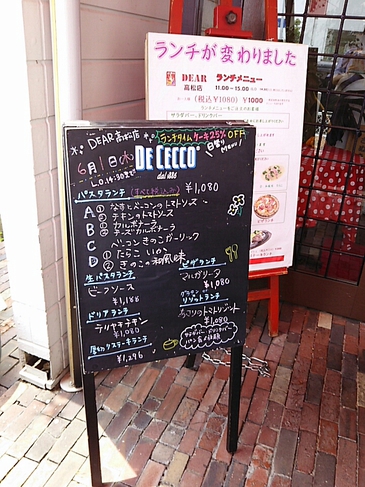 ランチが変わりました
DEAR ランチメニュー
高松店 11:00～15:00
(税込¥1080) ¥1000
サラダバー、ドリンクバー
DEAR高松店
ランチタイム ケーキ25% OFF
6月1日(水)
L.O 14:30まで
DE CECCO
dal 1886
日替り
Menu!
パスタランチ (すべて税込み) ¥1,080
A ① なすとベーコンのトマトソース
② チキンのトマトソース
B ① カルボナーラ
② チーズカルボナーラ
C ベーコンきのこガーリック
D ① たらこ いか
② きのこの和風味
生パスタランチ
ビーフソース
¥1,188
ピザランチ
マルガリータ
¥1,080
ドリアランチ
テリヤキチキン
¥1,080
リゾットランチ
トマトリゾット
¥1,080
厚切りステーキランチ
¥1,296
サラダバー、ドリンクバー